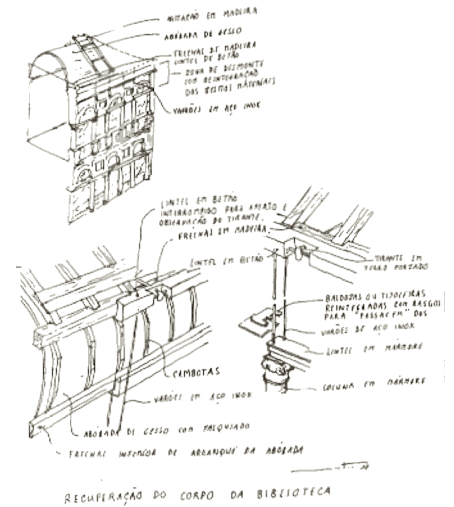 ARMAÇÃO EM MADEIRA
ABÓBADA DE GESSO
FRECHAS DE MADEIRA
LINTEL DE BETÃO
ZONA DE DESMONTE
COM REINTEGRAÇÃO
DOS MESMOS MATERIAIS
VARÕES EM AÇO INOX
LINTEL EM BETÃO
INTERROMPIDO PARA APERTO E
OBSERVAÇÃO DO TIRANTE.
FRECHAS EM MADEIRA
LINTEL EM BETÃO
TIRANTE EM
FERRO FORJADO
BALDOZAS OU TIJOLEIRAS
REINTEGRADAS COM RASGOS
PARA "PASSAGEM" DOS
VARÕES DE AÇO INOX
LINTEL EM MÁRMORE
COLUNA EM MÁRMORE
CAMBOTAS
VARÕES EM AÇO INOX
ABÓBADA DE GESSO COM FASQUIADO
FRECHAL INFERIOR DE ARRANQUE DA ABÓBADA
RECUPERAÇÃO DO CORPO DA BIBLIOTECA